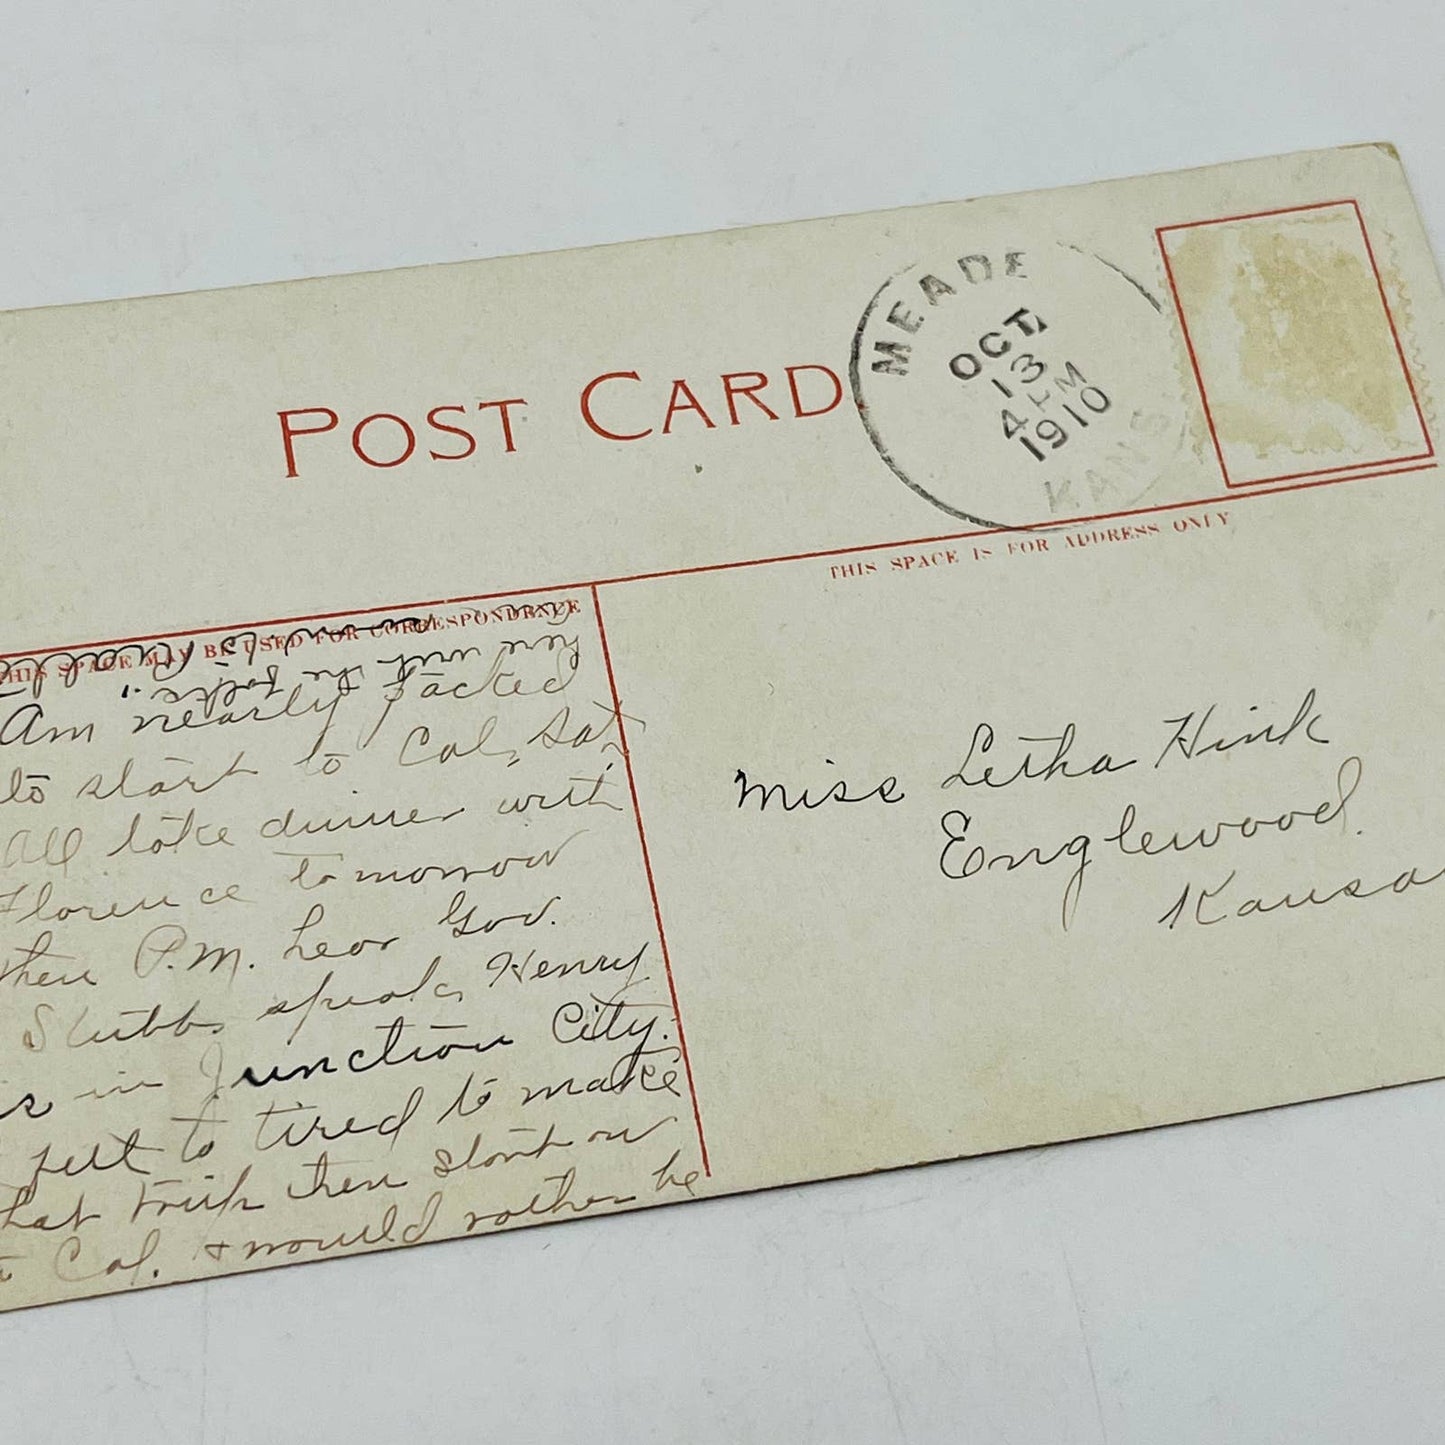 POST CARD
MEADE
OCT
13
4 PM
1910
KANS.
THIS SPACE MAY BE USED FOR CORRESPONDENCE
THIS SPACE IS FOR ADDRESS ONLY
Am nearly packed
to start to Cal, Sat,
All take dinner with
Florence tomorrow
then P.M. hear Gov.
Stubbs speak, Henry
is in Junction City.
felt to tired to make
that trip then start on
to Cal. + would rather be
here with the folks.
Miss Letha Hink
Englewood.
Kansas